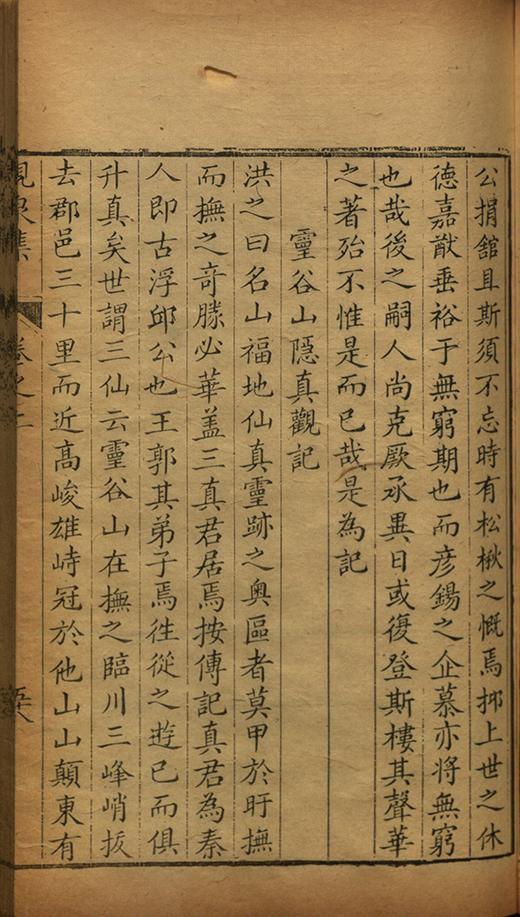 公捐舘且斯須不忘時有松楸之慨焉抑上世之休
德嘉猷垂裕于無窮期也而彦鍚之企慕亦將無窮
也哉後之嗣人尚克厥承異日或復登斯樓其聲華
之著殆不惟是而已哉是為記
靈谷山隱真觀記
洪之曰名山福地仙真靈跡之奥區者莫甲於盱撫
而撫之竒勝必華盖三真君居焉按傳記真君為秦
人即古浮邱公也王郭其弟子焉徃從之遊已而俱
升真矣世謂三仙云靈谷山在撫之臨川三峰峭拔
去郡邑三十里而近高峻雄峙冠於他山山顛東有
峴泉集
卷之二